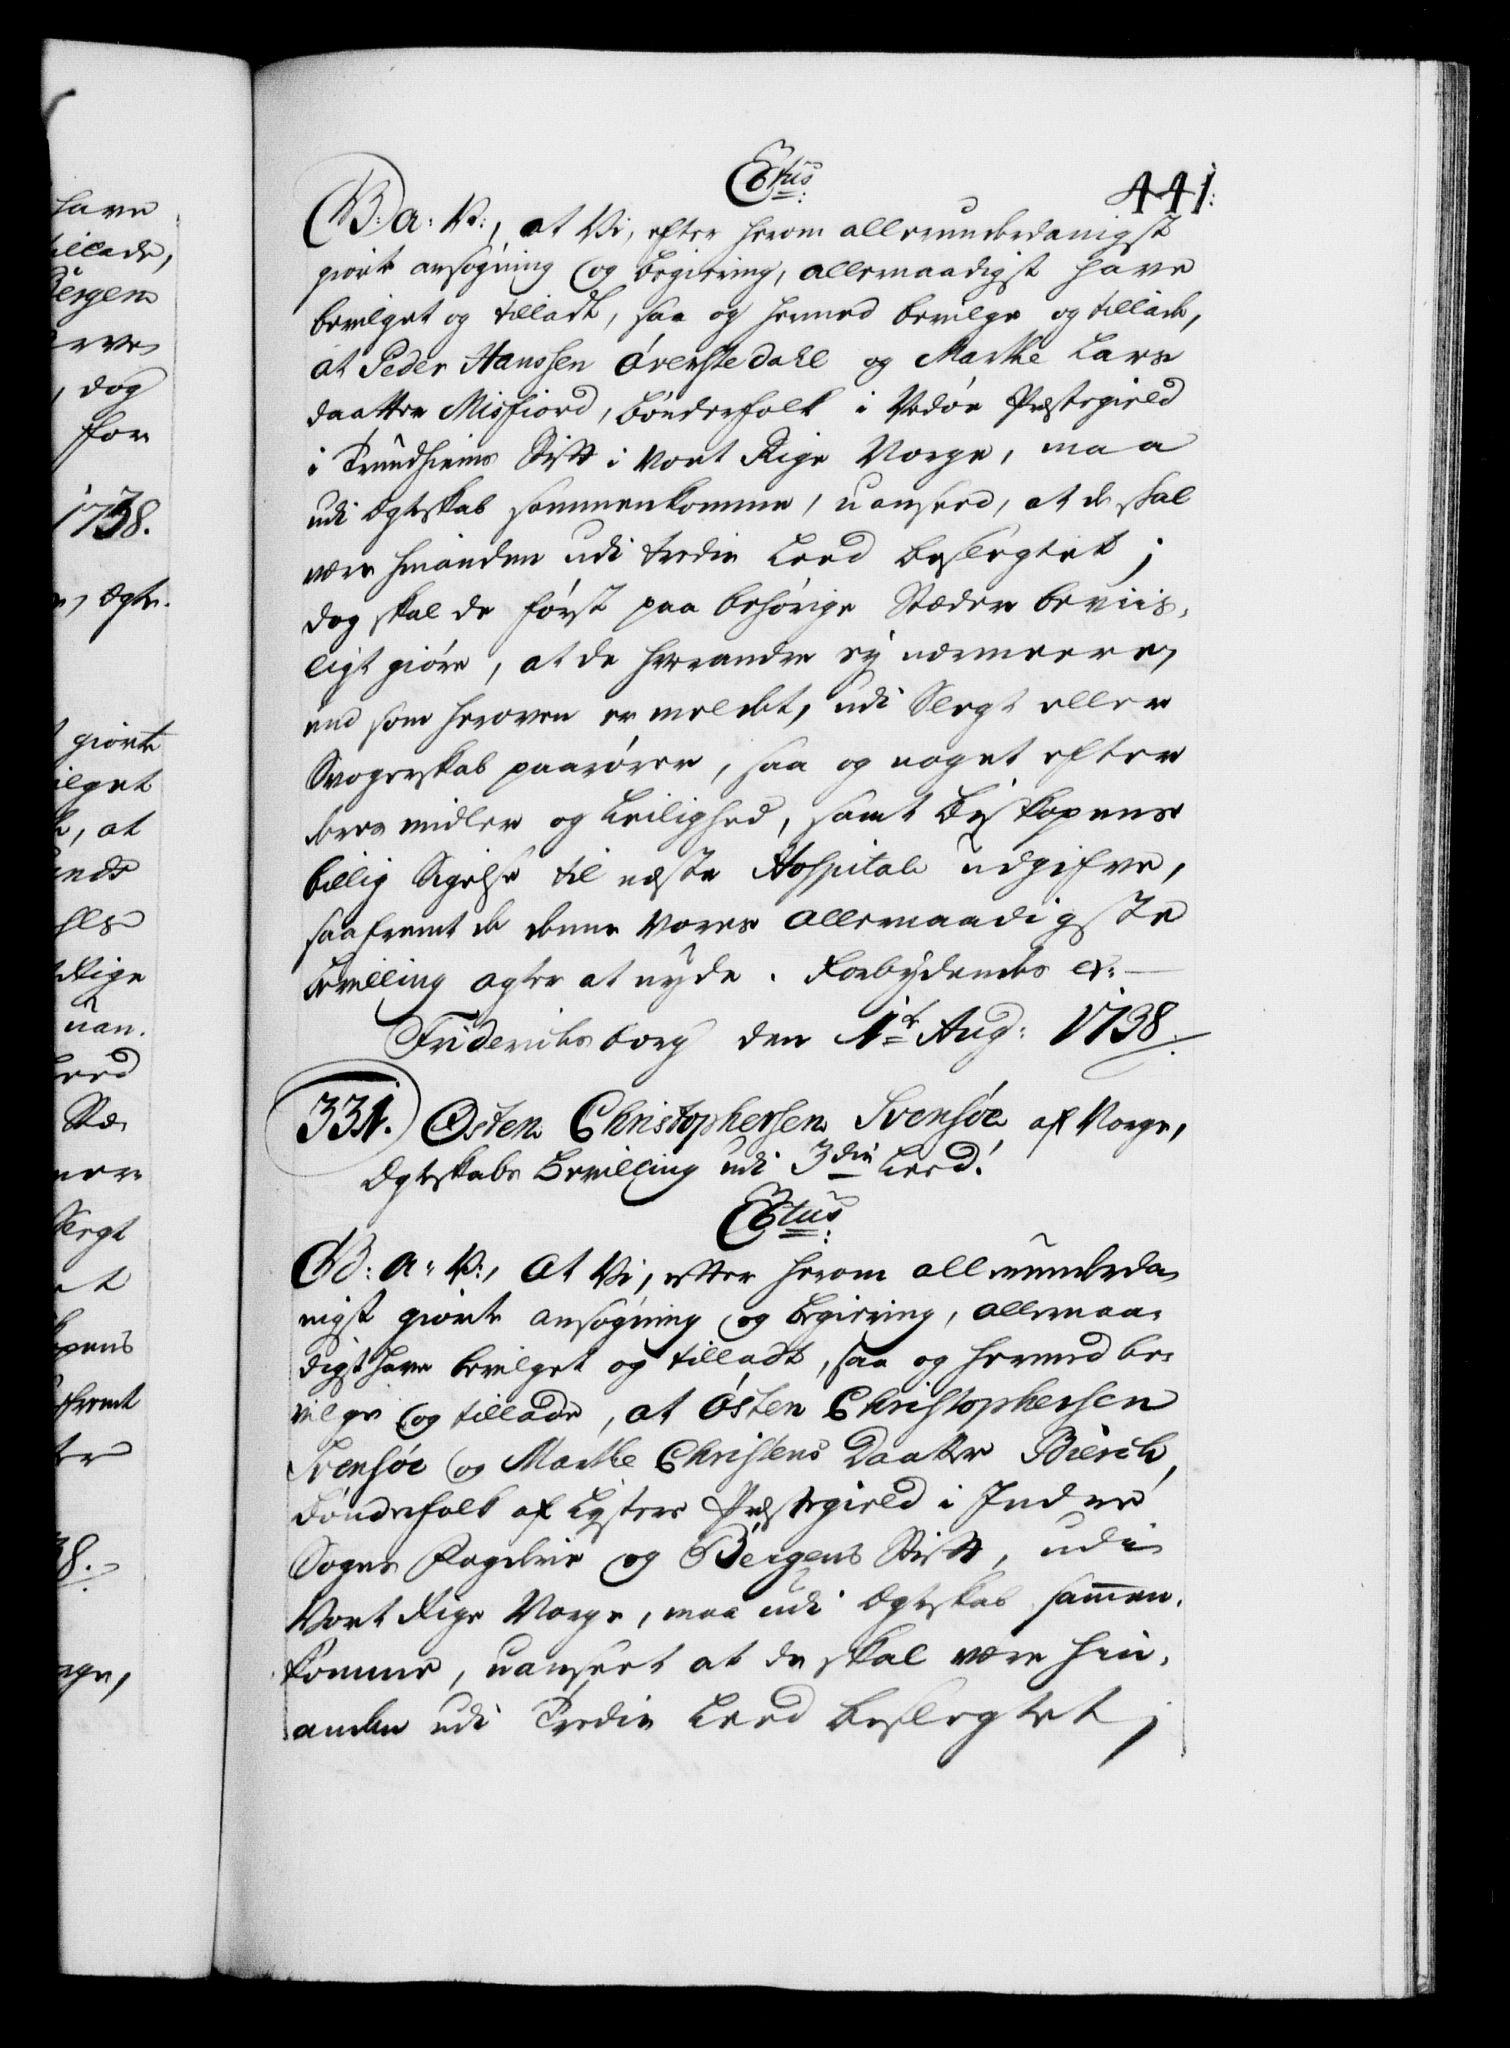 441.
C6tus
G: A: V:, at Vi, efter herom allerunderdanigst
giorte ansøgning og begiering, allernaadigst have
bevilget og tilladt, saa og hermed bevilge og tillade,
at Peder Hanssen Överstedahl og Marthe Lars
daatter Misfiord, bønderfolk i Vedöe Præstegield
i Trundhiems Stift i vort Rige Norge, maa
udi Egteskab sammenkomme, uanseed, at de skal
være hinanden udi tredie Leed beslegtet;
dog skal de først paa behörige Stæder beviis-
ligt giöre, at de hverandre ej nærmeere,
end som heroven er meldet, udi Slegt eller
Svogerskab paarörer, saa og noget efter
deres midler og Leilighed, samt Biskopens
billig Sigelse til næste Hospital udgifve,
saafremt de denne Vores Allernaadigste
bevilling agter at nyde. Forbydendes etc:
Friderichsborg den 1te Aug: 1738.
331. Østen Christophersen Svensöe af Norge,
Egteskabs Bevilling udi 3die Leed.
C6tus
G: A: V:, At Vi, efter herom allerunderda-
nigst giorte ansøgning og begiering, allernaa-
digst have bevilget og tilladt, saa og hermed be-
vilge og tillade, at Östen Christophersen
Svensöe og Marthe Christens Daatter Bierch,
bønderfolk af Lysters Præstegield i Indre
Sogns Fogderie og Bergens Stift, udi
Vort Rige Norge, maa udi Egteskab sammen-
komme, uanseet at de skal være hin-
anden udi Tredie Leed beslegtet;